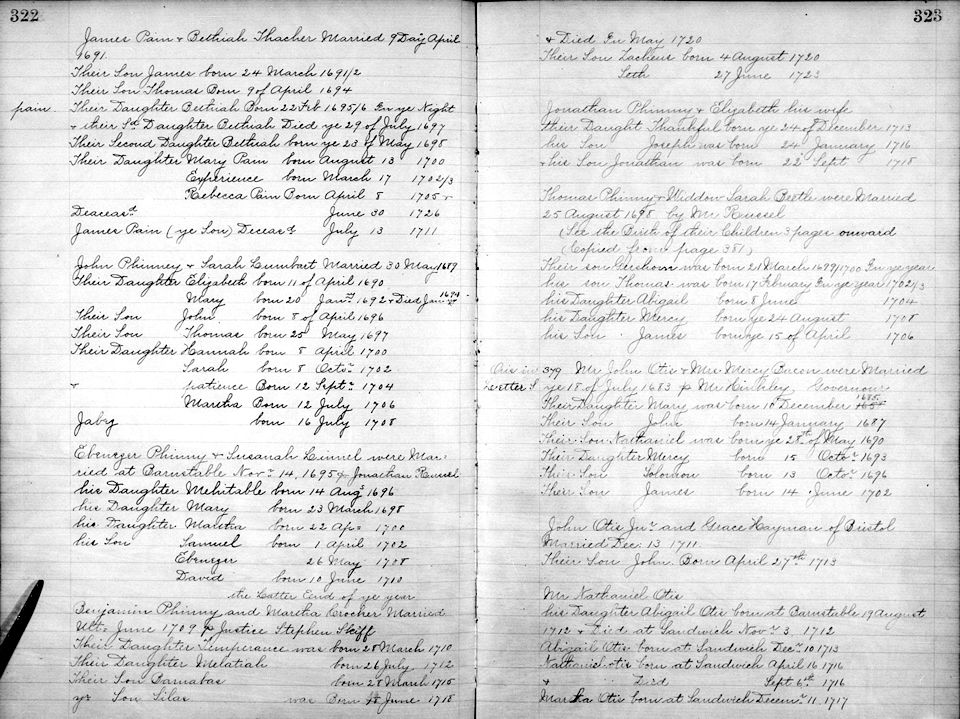 322
James Pain & Bethiah Thacher Married 9 Day April
1691.
Their Son James born 24 March 1691/2
Their Son Thomas Born 9 of April 1694
pain Their Daughter Bethiah Born 22 Feb 1695/6 En ye Night
& their Sd Daughter Bethiah Died ye 29 of July 1697
Their Second Daughter Bethiah born ye 23 of May 1698
Their Daughter Mary Pain born August 13 1700
Experience born March 17 1702/3
Rebecca Pain Born April 8 1705 &
Deaceast June 30 1726
James Pain (ye Son) Deceast July 13 1711
John Phinney & Sarah Lumbart Married 30 May 1689
Their Daughter Elizabeth born 11 of April 1690
Mary born 20 Janry 1692 & Died Janry 1694
Their Son John born 8 of April 1696
Their Son Thomas born 25 May 1697
Their Daughter Hannah born 8 April 1700
Sarah born 8 Octor 1702
& patience Born 12 Septr 1704
Martha Born 12 July 1706
Jabez born 16 July 1708
Ebenezer Phinny & Susanah Linnel were Mar-
ried at Barnstable Novr 14, 1695 Jonathan Russel
his Daughter Mehitable born 14 Augt 1696
his Daughter Mary born 23 March 1698
his Daughter Martha born 22 Ap= 1700
his Son Samuel born 1 April 1702
Ebenezer 26 May 1708
David born 10 June 1710
the Latter End of ye year
Benjamin Phinny and Martha Crocker Married
Ult= June 1709 p Justice Stephen Skiff
Their Daughter Temperance was born 28 March 1710
Their Daughter Melatiah born 26 July 1712
Their Son Barnabas born 28 March 1715
yr Son Silas was Born June 1718
323
& Died En May 1720
Their Son Zacheus born 4 August 1720
Seth 27 June 1723
Jonathan Phinny & Elizabeth his wife
their Daught Thankful born ye 24 of December 1713
his Son Joseph was born 24 January 1716
& his Son Jonathan was born 22 Sept 1718
Thomas Phinny & Widdow Sarah Beetle were Married
25 August 1698 by Mr Russel
(See the Birth of their Children 3 pages onward
(Copied from page 381)
Their son Gershom was born 21 March 1699/1700 En ye year
his son Thomas was born 17 February En ye year 1702/3
his Daughter Abigail born 8 June 1704
his Daughter Mercy born ye 24 August 1708
his Son James born ye 15 of April 1706
379 Mr John Otis & Mrs Mercy Bacon were Married
ye 18 of July 1683 p Mr Hinkley, Governour
Their Daughter Mary was born 10 December 1685
Their Son John born 14 January 1687
Their Son Nathaniel was born ye 28th of May 1690
Their Daughter Mercy born 15 Octor 1693
Their Son Solomon born 13 Octor 1696
Their Son James born 14 June 1702
John Otis Junr and Grace Hayman of Bristol
Married Dec. 13 1711
Their Son John Born April 27th 1713
Mr Nathaniel Otis
his Daughter Abigail Otis born at Barnstable 19 August
1712 & Died at Sandwich Novr 3 1712
Abigail Otis born at Sandwich Decr 10 1713
Nathaniel Otis born at Sandwich April 16 1716
& Died Sept 6th 1716
Martha Otis born at Sandwich Decemr 11, 1717